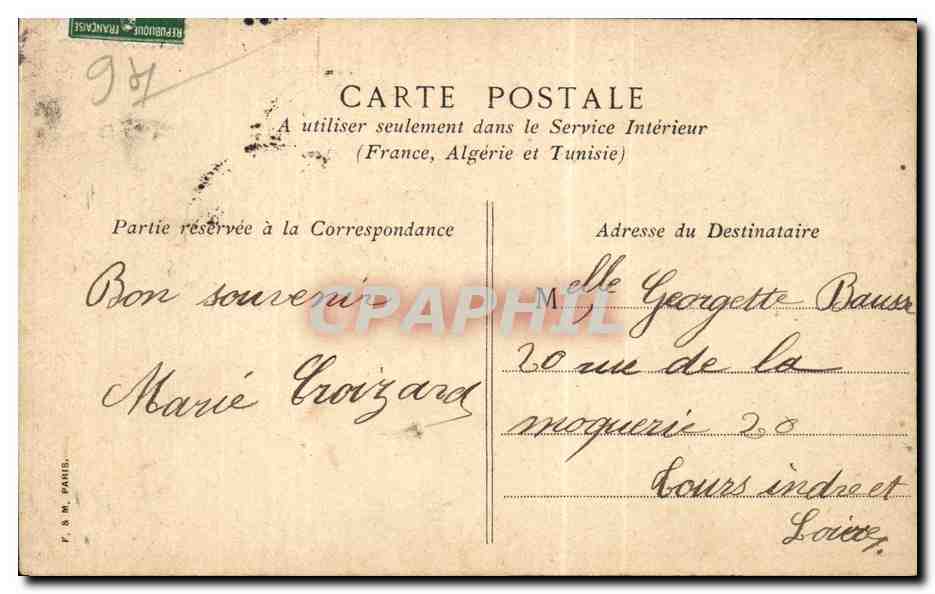 RÉPUBLIQUE FRANÇAISE
97
CARTE POSTALE
A utiliser seulement dans le Service Intérieur
(France, Algérie et Tunisie)
Partie réservée à la Correspondance
Bon souvenir
Marie Croizard
Adresse du Destinataire
Melle Georgette
20 rue de la
moquerie 20
Tours indre et
Loire
CPAPHIL
F. & M. PARIS.